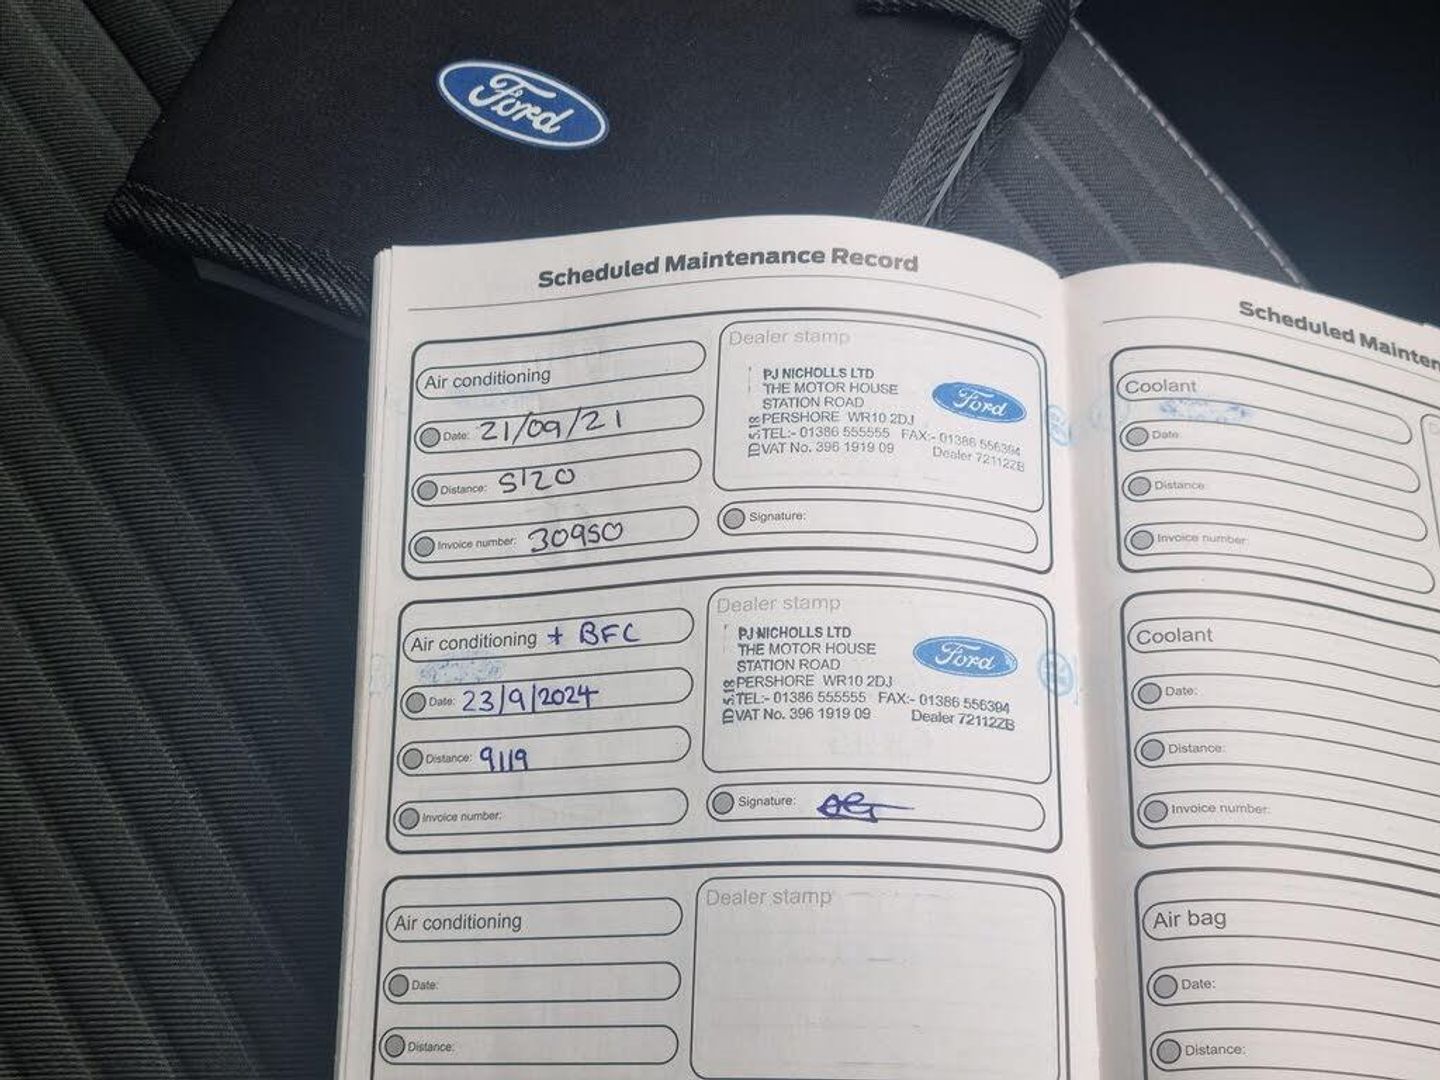 Ford
Scheduled Maintenance Record
Air conditioning
Date: 21/09/21
Distance: 5120
Invoice number: 30950
Dealer stamp
PJ NICHOLLS LTD
THE MOTOR HOUSE
STATION ROAD
PERSHORE WR10 2DJ
TEL:- 01386 555555 FAX:- 01386 556394
VAT No. 396 1919 09 Dealer 72112ZB
Ford
ID 5.18
Signature:
Air conditioning + BFC
Date: 23/9/2024
Distance: 9119
Invoice number:
Dealer stamp
PJ NICHOLLS LTD
THE MOTOR HOUSE
STATION ROAD
PERSHORE WR10 2DJ
TEL:- 01386 555555 FAX:- 01386 556394
VAT No. 396 1919 09 Dealer 72112ZB
Ford
ID 5.18
Signature:
Air conditioning
Date:
Distance:
Dealer stamp
Scheduled Mainten
Coolant
Date:
Distance:
Invoice number:
Coolant
Date:
Distance:
Invoice number:
Air bag
Date:
Distance: